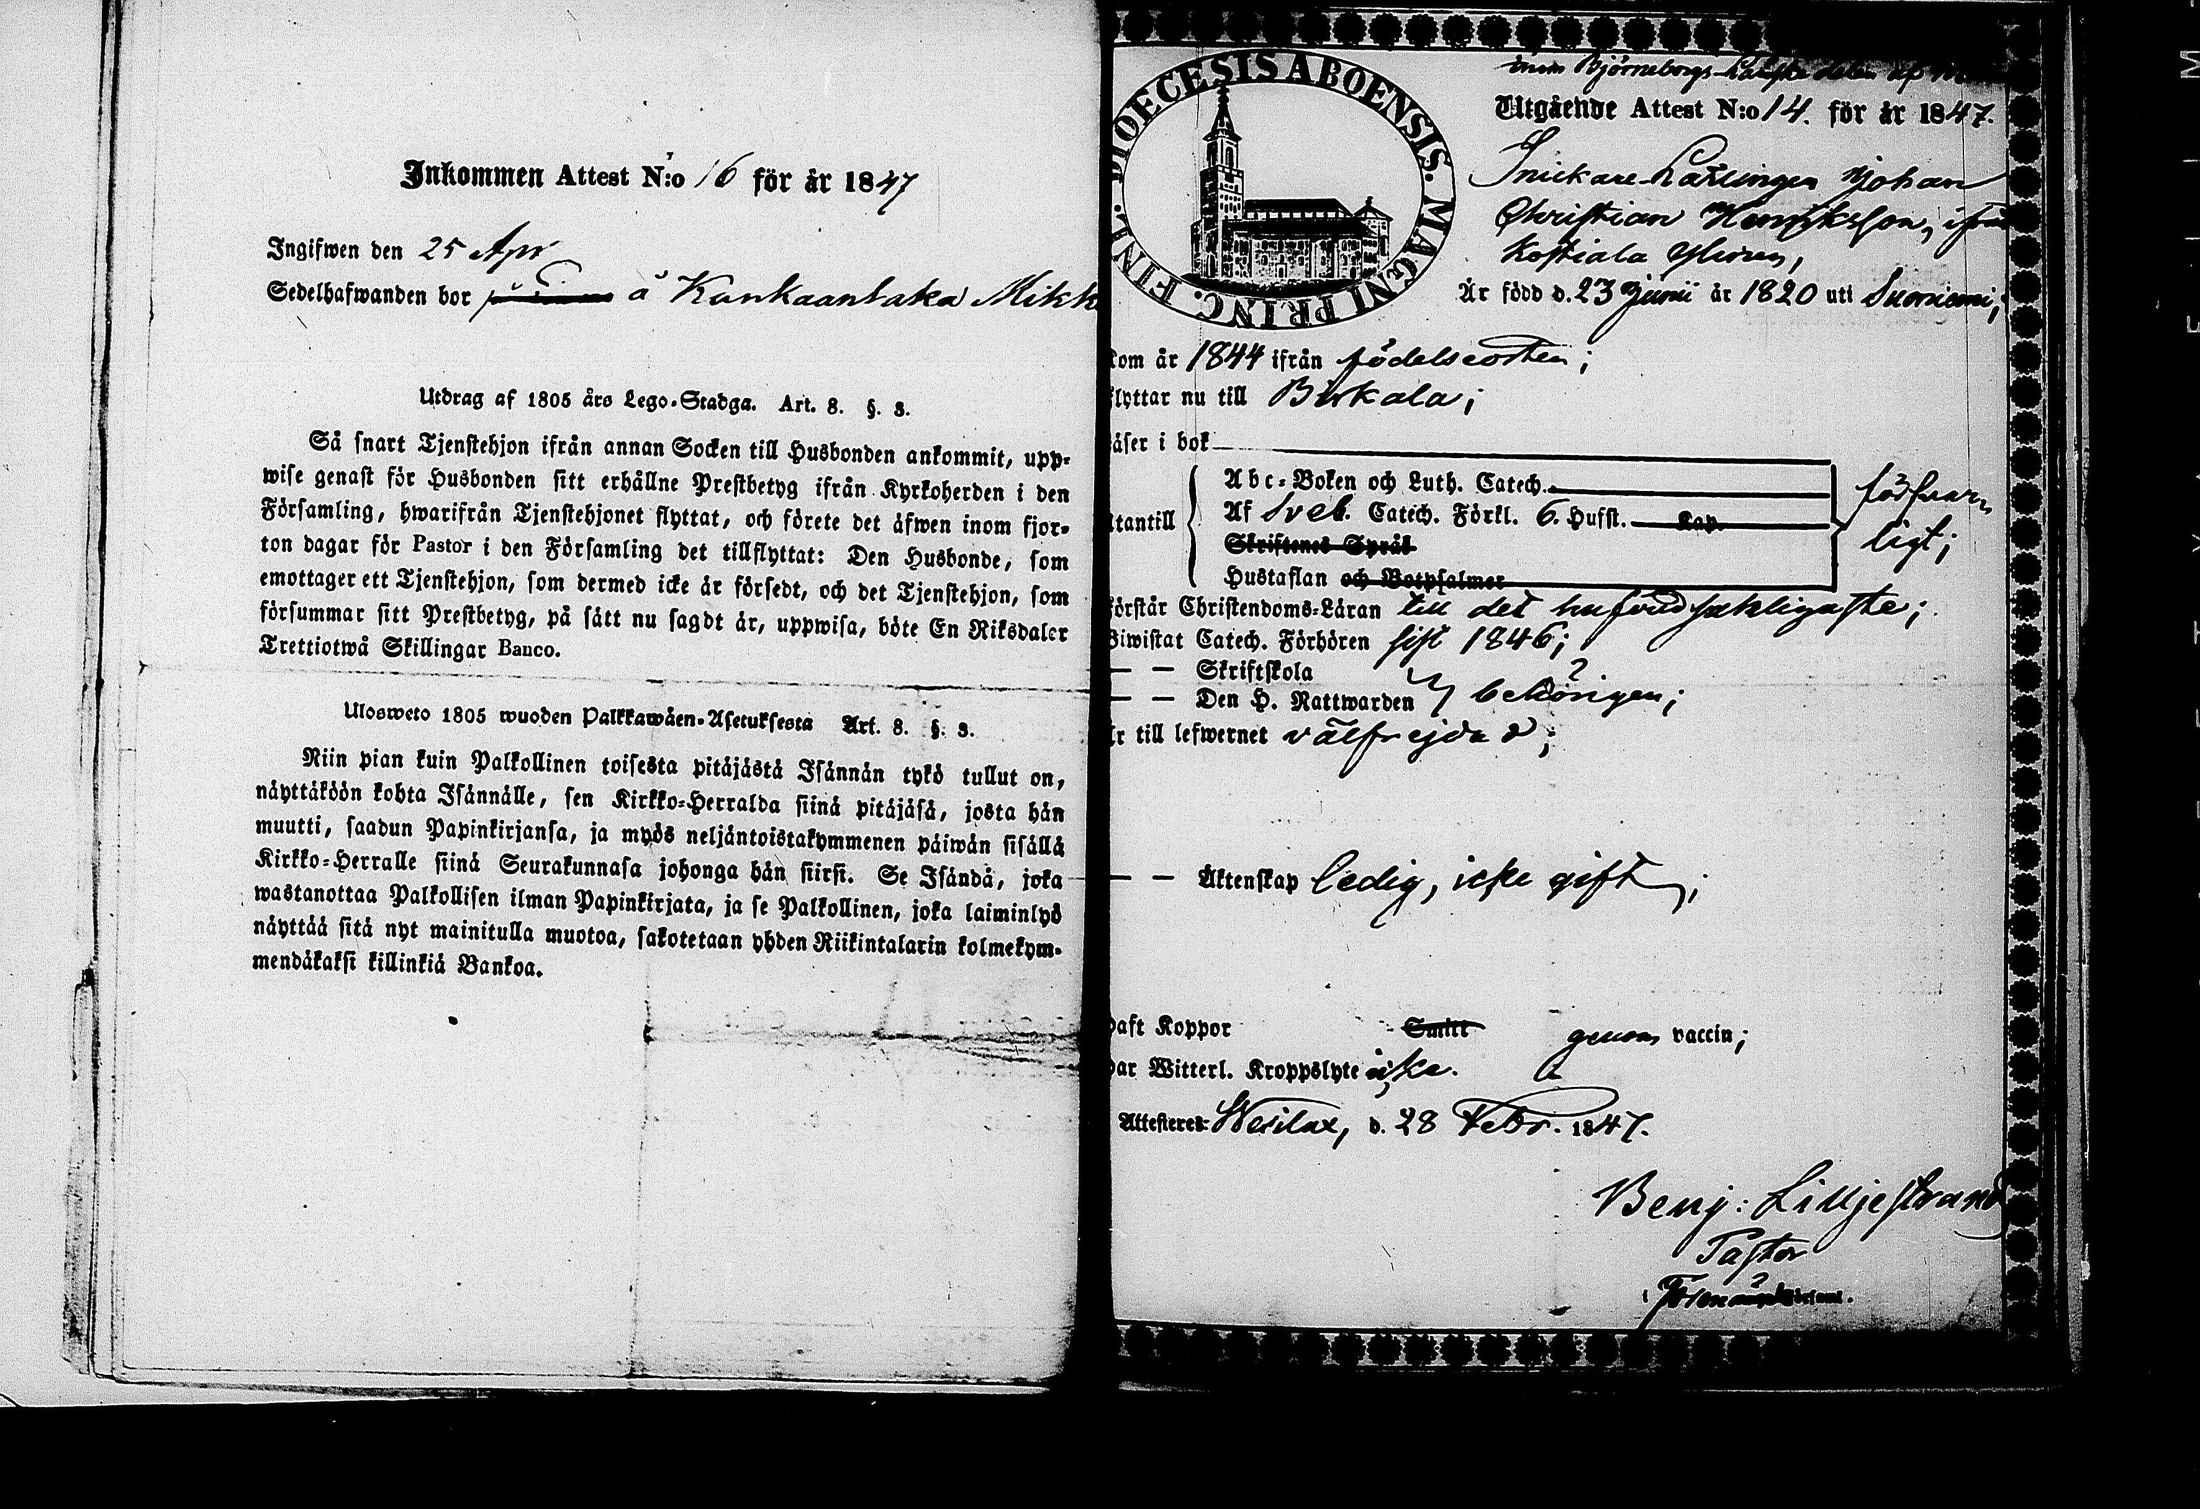 Inkommen Attest N:o 16 för år 1847
Ingifwen den 25 Apr
Sedelhafwanden bor å Kankaantaka Mikk
Utdrag af 1805 års Lego-Stadga. Art. 8. §. 3.
Så snart Tjenstehjon ifrån annan Socken till Husbonden ankommit, upp-
wise genast för Husbonden sitt erhållne Prestbetyg ifrån Kyrkoherden i den
Församling, hwarifrån Tjenstehjonet flyttat, och förete det äfwen inom fjor-
ton dagar för Pastor i den Församling det tillflyttat: Den Husbonde, som
emottager ett Tjenstehjon, som dermed icke är försedt, och det Tjenstehjon, som
försummar sitt Prestbetyg, på sätt nu sagdt är, uppwisa, böte En Riksdaler
Trettiotwå Skillingar Banco.
Ulosweto 1805 wuoden Palkkawäen-Asetuksesta Art. 8. §. 3.
Niin pian kuin Palkollinen toisesta pitäjästä Isännän tykö tullut on,
näyttäköön kohta Isännälle, sen Kirkko-Herralda siinä pitäjäsä, josta hän
muutti, saadun Papinkirjansa, ja myös neljäntoistakymmenen päiwän sisällä
Kirkko-Herralle siinä Seurakunnasa johonga hän siirsi. Se Isändä, joka
wastanottaa Palkollisen ilman Papinkirjata, ja se Palkollinen, joka laiminlyö
näyttää sitä nyt mainitulla muotoa, sakotetaan yhden Riikintalarin kolmekym-
mendäkaksi killinkiä Bankoa.
FINL. DIOECESIS ABOENSIS. MAGNI PRINC.
inom Björneborgs
Utgående Attest N:o 14. för år 1847.
Snickare-Lärlingen Johan
Christian Henriksson, ifrån
Kostiala Yloinen,
Är född d. 23 Junii år 1820 uti Suoniemi;
kom år 1844 ifrån födelseorten;
flyttar nu till Birkala;
läser i bok
Abc-Boken och Luth. Catech.
utantill Af Sveb. Catech. Förkl. 6. Hufst. Kap.
Skriftenes Språk
Hustaflan och Botpsalmer
försvar-
ligt;
förstår Christendoms-Läran till det hufvudsakligaste;
Biwistat Catech. Förhören sist 1846;
— — Skriftskola
— — Den H. Nattwarden behörigen;
är till lefwernet välfrejdad;
— — Äktenskap ledig, icke gift;
haft Koppor Smitt genom vaccin;
har Witterl. Kroppslyte icke.
Attesteres Wesilax, d. 28 Febr. 1847.
Benj: Lilljestrand
Pastor